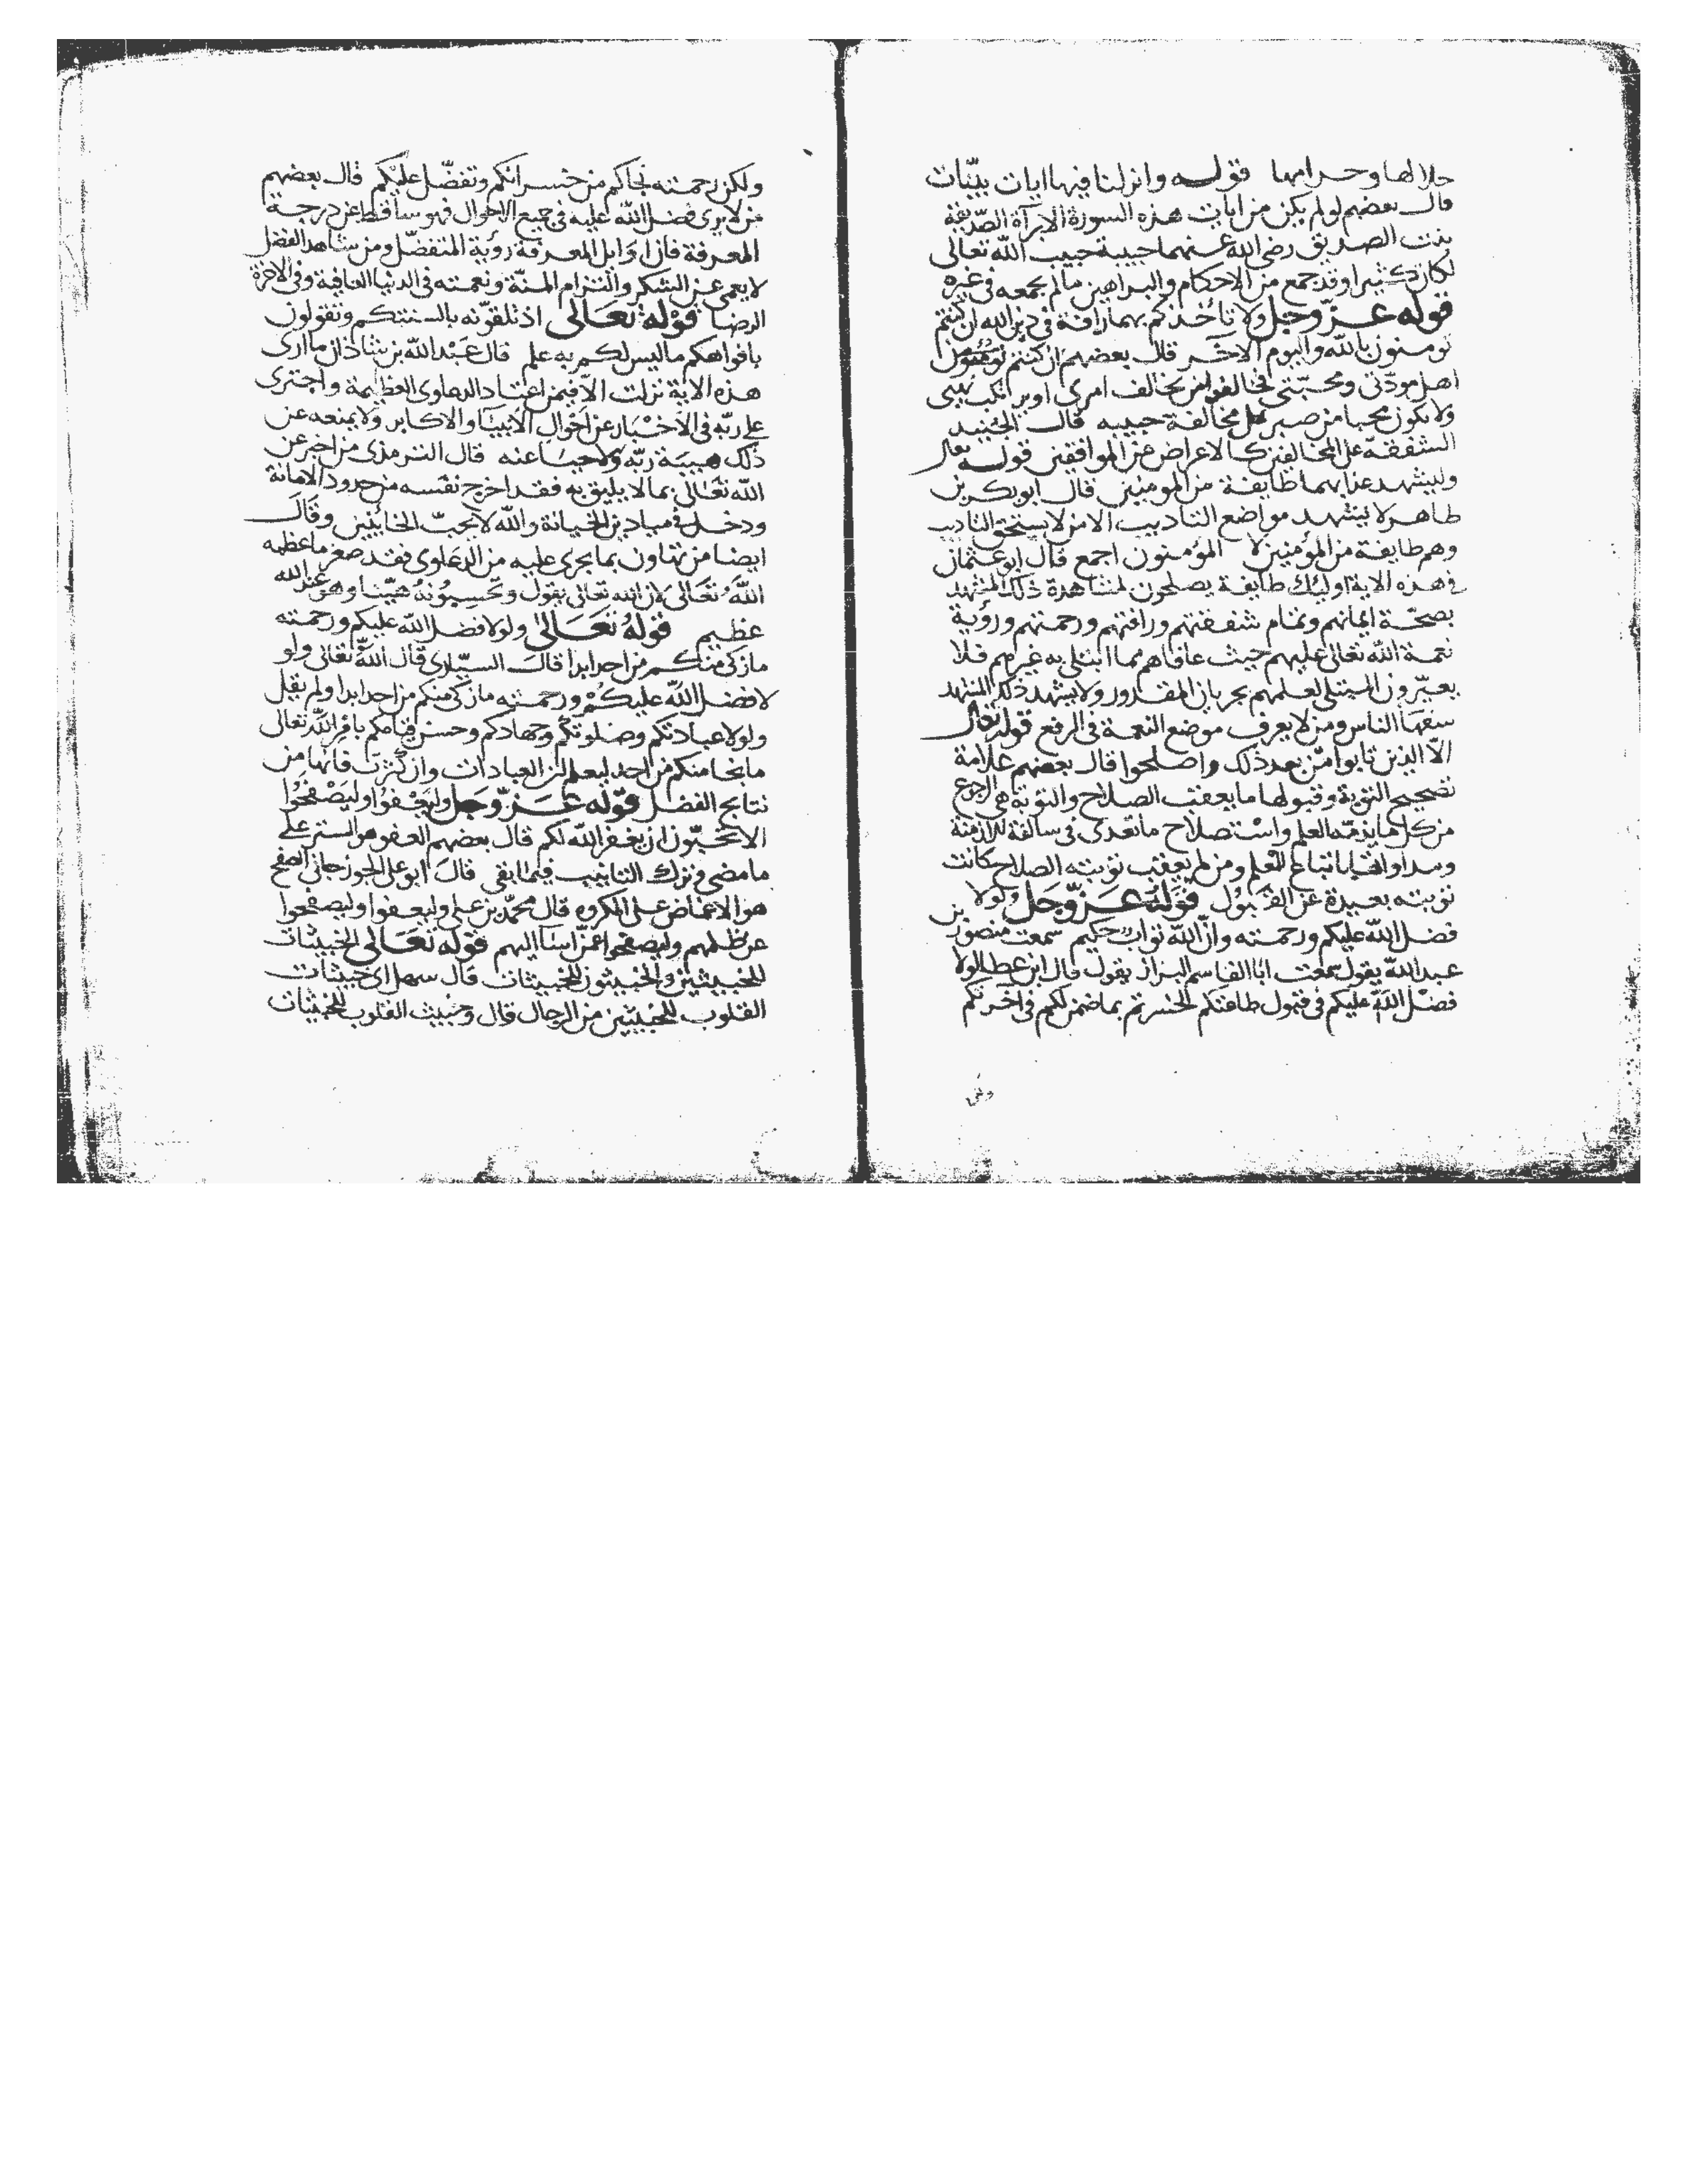 حلالها وحرامها قوله وانزلنا فيها ايات بيّنات
قال بعضهم لو لم يكن من ايات هذه السورة الا براة الصدّيقة
بنت الصديق رضي الله عنهما حبيبة حبيب الله تعالى
لكان كثيرا وقد جمع من الاحكام والبراهين ما لم يجمعه في غيره
قوله عزّ وجل ولا تاخذكم بهما رافة في دين الله ان كنتم
تومنون بالله واليوم الاخر قال بعضهم ان كنتم من
اهل مودّتي ومحبّتي فخالفوا من يخالف امري او يرتكب نهيي
ولا يكون محبا من صبر على مخالفة حبيبه قال الجنيد
الشفقة على المخالفين كالاعراض عن الموافقين قوله تعالى
وليشهد عذابهما طايفة من المومنين قال ابو بكر بن
طاهر لا يشهد مواضع التاديب الا من لا يستحق التاديب
وهم طايفة من المؤمنين لا المؤمنون اجمع قال ابو عثمان
في هذه الاية اوليك طايفة يصلحون لمشاهدة ذلك المشهد
بصحّة ايمانهم وتمام شفقتهم ورافتهم ورحمتهم ورؤية
نعمة الله تعالى عليهم حيث عافاهم مما ابتلي به غيرهم فلا
يعيّرون المبتلى لعلمهم بجريان المقدور ولا يشهد ذلك المشهد
سفها الناس ومن لا يعرف موضع النعمة في الرفع قوله تعالى
الا الذين تابوا من بعد ذلك واصلحوا قال بعضهم علامة
تصحيح التوبة وقبولها ما يعقب الصلاح والتوبة هي الرجع
من كل ما يذمّه العلم واستصلاح ما تعدى في سالفة الازمنة
ومداواتها باتباع العلم ومن لم يعقب توبته الصلاح كانت
توبته بعيدة عن القبول قوله عزّ وجل ولولا
فضل الله عليكم ورحمته وانّ الله تواب حكيم سمعت منصور بن
عبد الله يقول سمعت ابا القاسم البزاز يقول قال ابن عطا لولا
فضل الله عليكم في قبول طاعتكم لخسرتم بما ضمن لكم في اخرتكم
ولكن رحمته نجاكم من خسرانكم وتفضّل عليكم قال بعضهم
من لا يرى فضل الله عليه في جميع الاحوال فهو ساقط عن درجة
المعرفة فان اوايل المعرفة رؤية المتفضّل ومن شاهد الفضل
لا يعمى عن الشكر والتزام المنّة ونعمته في الدنيا العافية وفي الاخرة
الرضا قوله تعالى اذ تلقونه بالسنتكم وتقولون
بافواهكم ما ليس لكم به علم قال عبد الله بن شاذان ما ارى
هذه الاية نزلت الّا فيمن اعتاد الدعاوى العظيمة واجترى
على ربّه في الاخبار عن احوال الانبيا والاكابر ولا يمنعه عن
ذلك هيبة ربّه ولا حيا عنه قال الترمذي من اخبر عن
الله تعالى بما لا يليق به فقد اخرج نفسه من حدود الامانة
ودخل في ميادين الخيانة والله لا يحبّ الخاينين وقال
ايضا من تهاون بما يجرى عليه من الدعاوى فقد صغر ما عظمه
الله تعالى لان الله تعالى يقول وتحسبونه هيّنا وهو عند الله
عظيم قوله تعالى ولولا فضل الله عليكم ورحمته
ما زكى منكم من احد ابدا قال السيّارى قال الله تعالى ولو
لا فضل الله عليكم ورحمته ما زكى منكم من احد ابدا ولم يقل
ولولا عبادتكم وصلوتكم وجهادكم وحسن قيامكم بامر الله تعالى
ما نجا منكم من احد ليعلم ان العبادات وان كثرت فانها من
نتايج الفضل قوله عزّ وجل وليعفوا وليصفحوا
الا تحبّون ان يغفر الله لكم قال بعضهم العفو هو الستر على
ما مضى وترك التانيب فيما بقي قال ابو على الجوزجاني الصفح
هو الاغماض على المكروه قال محمّد بن على وليعفوا وليصفحوا
عن ظلمهم وليصفحوا عمّن اسا اليهم قوله تعالى الخبيثات
للخبيثين والخبيثون للخبيثات قال سهل اى خبيثات
القلوب للخبيثين من الرجال قال وخبيث القلوب للخبيثات